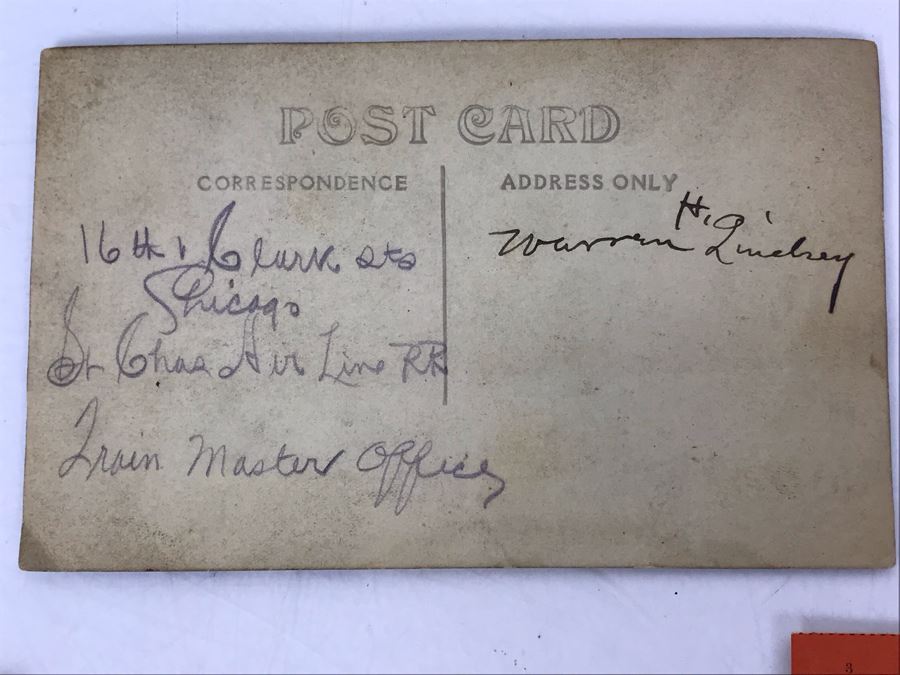 POST CARD
CORRESPONDENCE
ADDRESS ONLY
16th & Clark sts
Chicago
St Chas Air Line RR
Train Master Office
Warren H. Lindsey
3